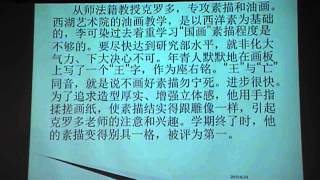 从师法籍教授克罗多，专攻素描和油画。
西湖艺术院的油画教学，是以西洋素为基础
的，李可染过去着重学习“国画”素描程度是
不够的。要尽快达到研究部水平，就非化大
气力、下大决心不可。年青人默默地在画板
上写了一个“王”字，作为座右铭。“王”与“亡”
同音，就是说不画好素描勿宁死。进步很快。
为了追求造型厚实、增强立体感，他用手指
揉搓画纸，使素描结实得跟雕像一样，引起
克罗多老师的注意和兴趣。学期终了时，他
的素描变得别具一格，被评为第一。